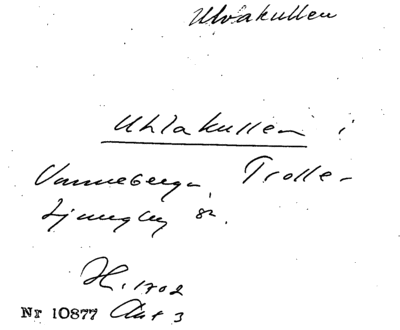 Ulvakullen
Uhlakullen i
Vanneberga, Trolle-
Ljungby sn.
H. 1702
Nr 10877 Akt 3